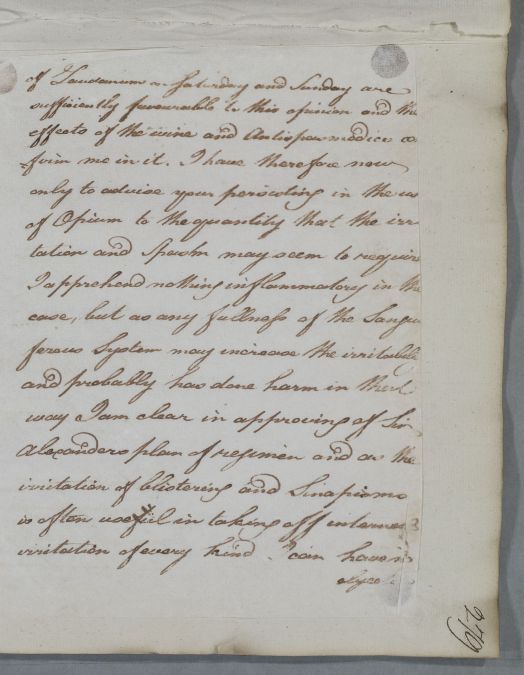 of Laudanum on Saturday and Sunday are
sufficiently favourable to this opinion and the
effects of the wine and Antispasmodics co
firm me in it. I have therefore now
only to advise your persisting in the us
of Opium to the quantity that the irri
tation and Spasm may seem to require
I apprehend nothing inflammatory in the
case, but as any fullness of the Sangui
ferous System may increase the irritabili
and probably has done harm in that
way I am clear in approving of Sir
Alexanders plan of regimen and as the
irritation of blistering and Sinapisms
is often useful in taking off internal
irritation of every kind I can have n
646